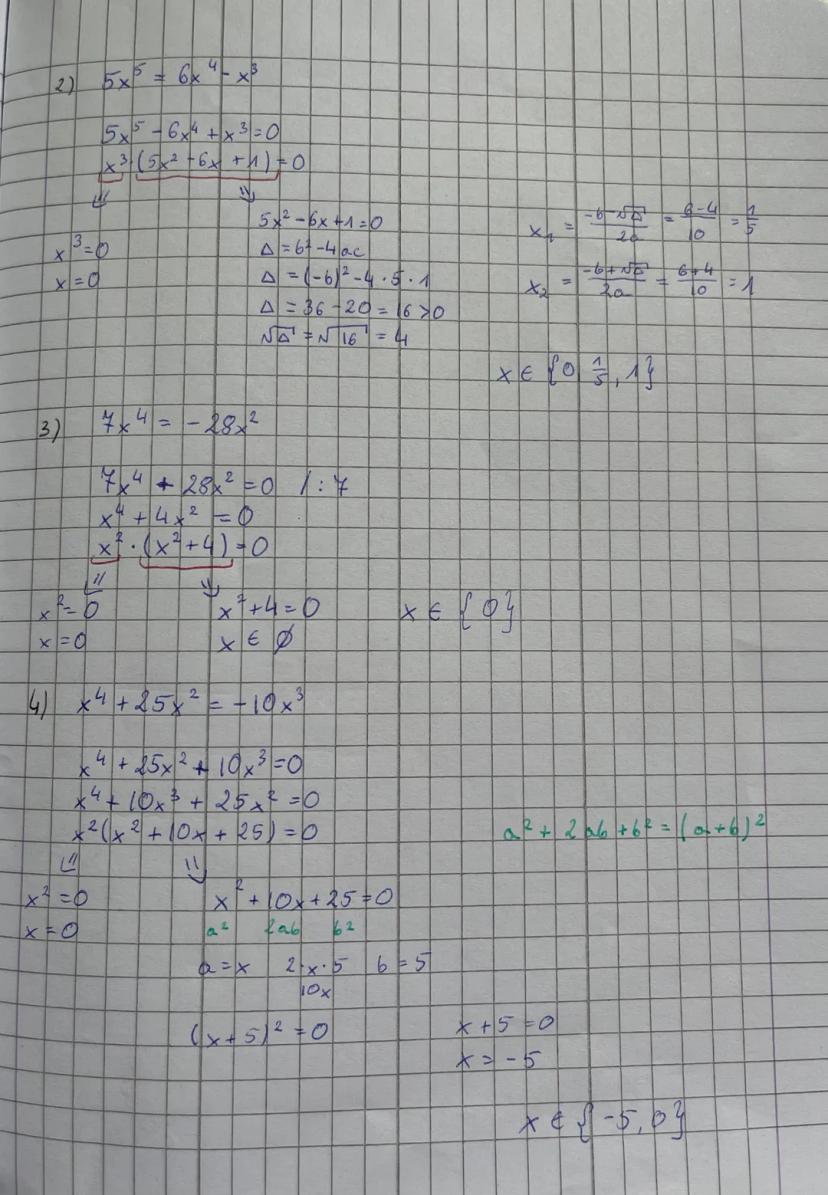 2) 5x⁵ = 6x⁴ - x³
5x⁵ - 6x⁴ + x³ = 0
x³ (5x² - 6x + 1) = 0
x³ = 0
x = 0
5x² - 6x + 1 = 0
Δ = b² - 4ac
Δ = (-6)² - 4 · 5 · 1
Δ = 36 - 20 = 16 > 0
√Δ = √16 = 4
x₁ = (-b - √Δ)/2a = (6 - 4)/10 = 1/5
x₂ = (-b + √Δ)/2a = (6 + 4)/10 = 1
x ∈ {0, 1/5, 1}
3) 7x⁴ = - 28x²
7x⁴ + 28x² = 0 / : 7
x⁴ + 4x² = 0
x² · (x² + 4) = 0
x² = 0
x = 0
x² + 4 = 0
x ∈ ∅
x ∈ {0}
4) x⁴ + 25x² = - 10x³
x⁴ + 25x² + 10x³ = 0
x⁴ + 10x³ + 25x² = 0
x² (x² + 10x + 25) = 0
a² + 2ab + b² = (a + b)²
x² = 0
x = 0
x² + 10x + 25 = 0
a² 2ab b²
a = x 2 · x · 5 b = 5
10x
(x + 5)² = 0
x + 5 = 0
x = - 5
x ∈ {-5, 0}